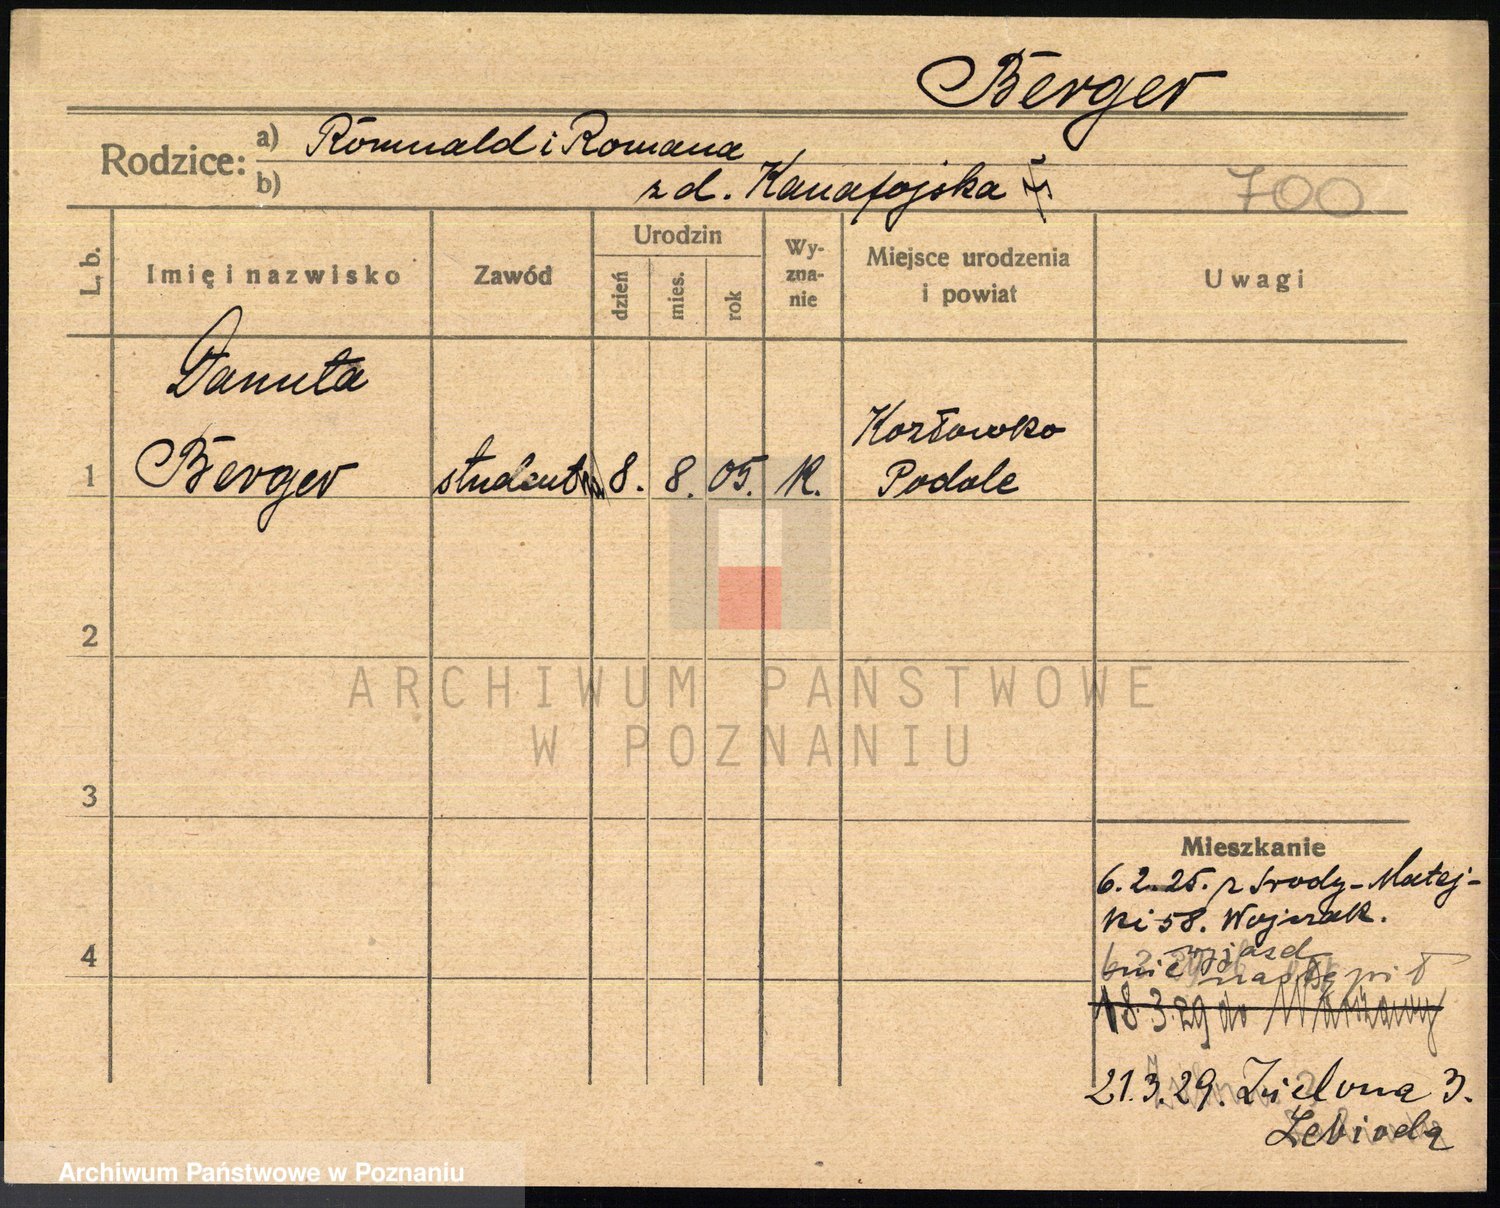 Berger
Rodzice: a) Romuald i Romana
b) z d. Kanafojska
700
L. b. Imię i nazwisko Zawód Urodzin dzień mies. rok Wyznanie Miejsce urodzenia i powiat Uwagi
Danuta
Berger studentka 8. 8. 05. K. Kozłowko
1 Podole
2
ARCHIWUM PAŃSTWOWE
W POZNANIU
3
Mieszkanie
6. 2. 25. z Środy - Matej-
ki 58. Wojczak.
4 wyjazd
nie nastąpił
18.3.29 do Warszawy
21.3.29. Zielona 3.
Lebioda
Archiwum Państwowe w Poznaniu